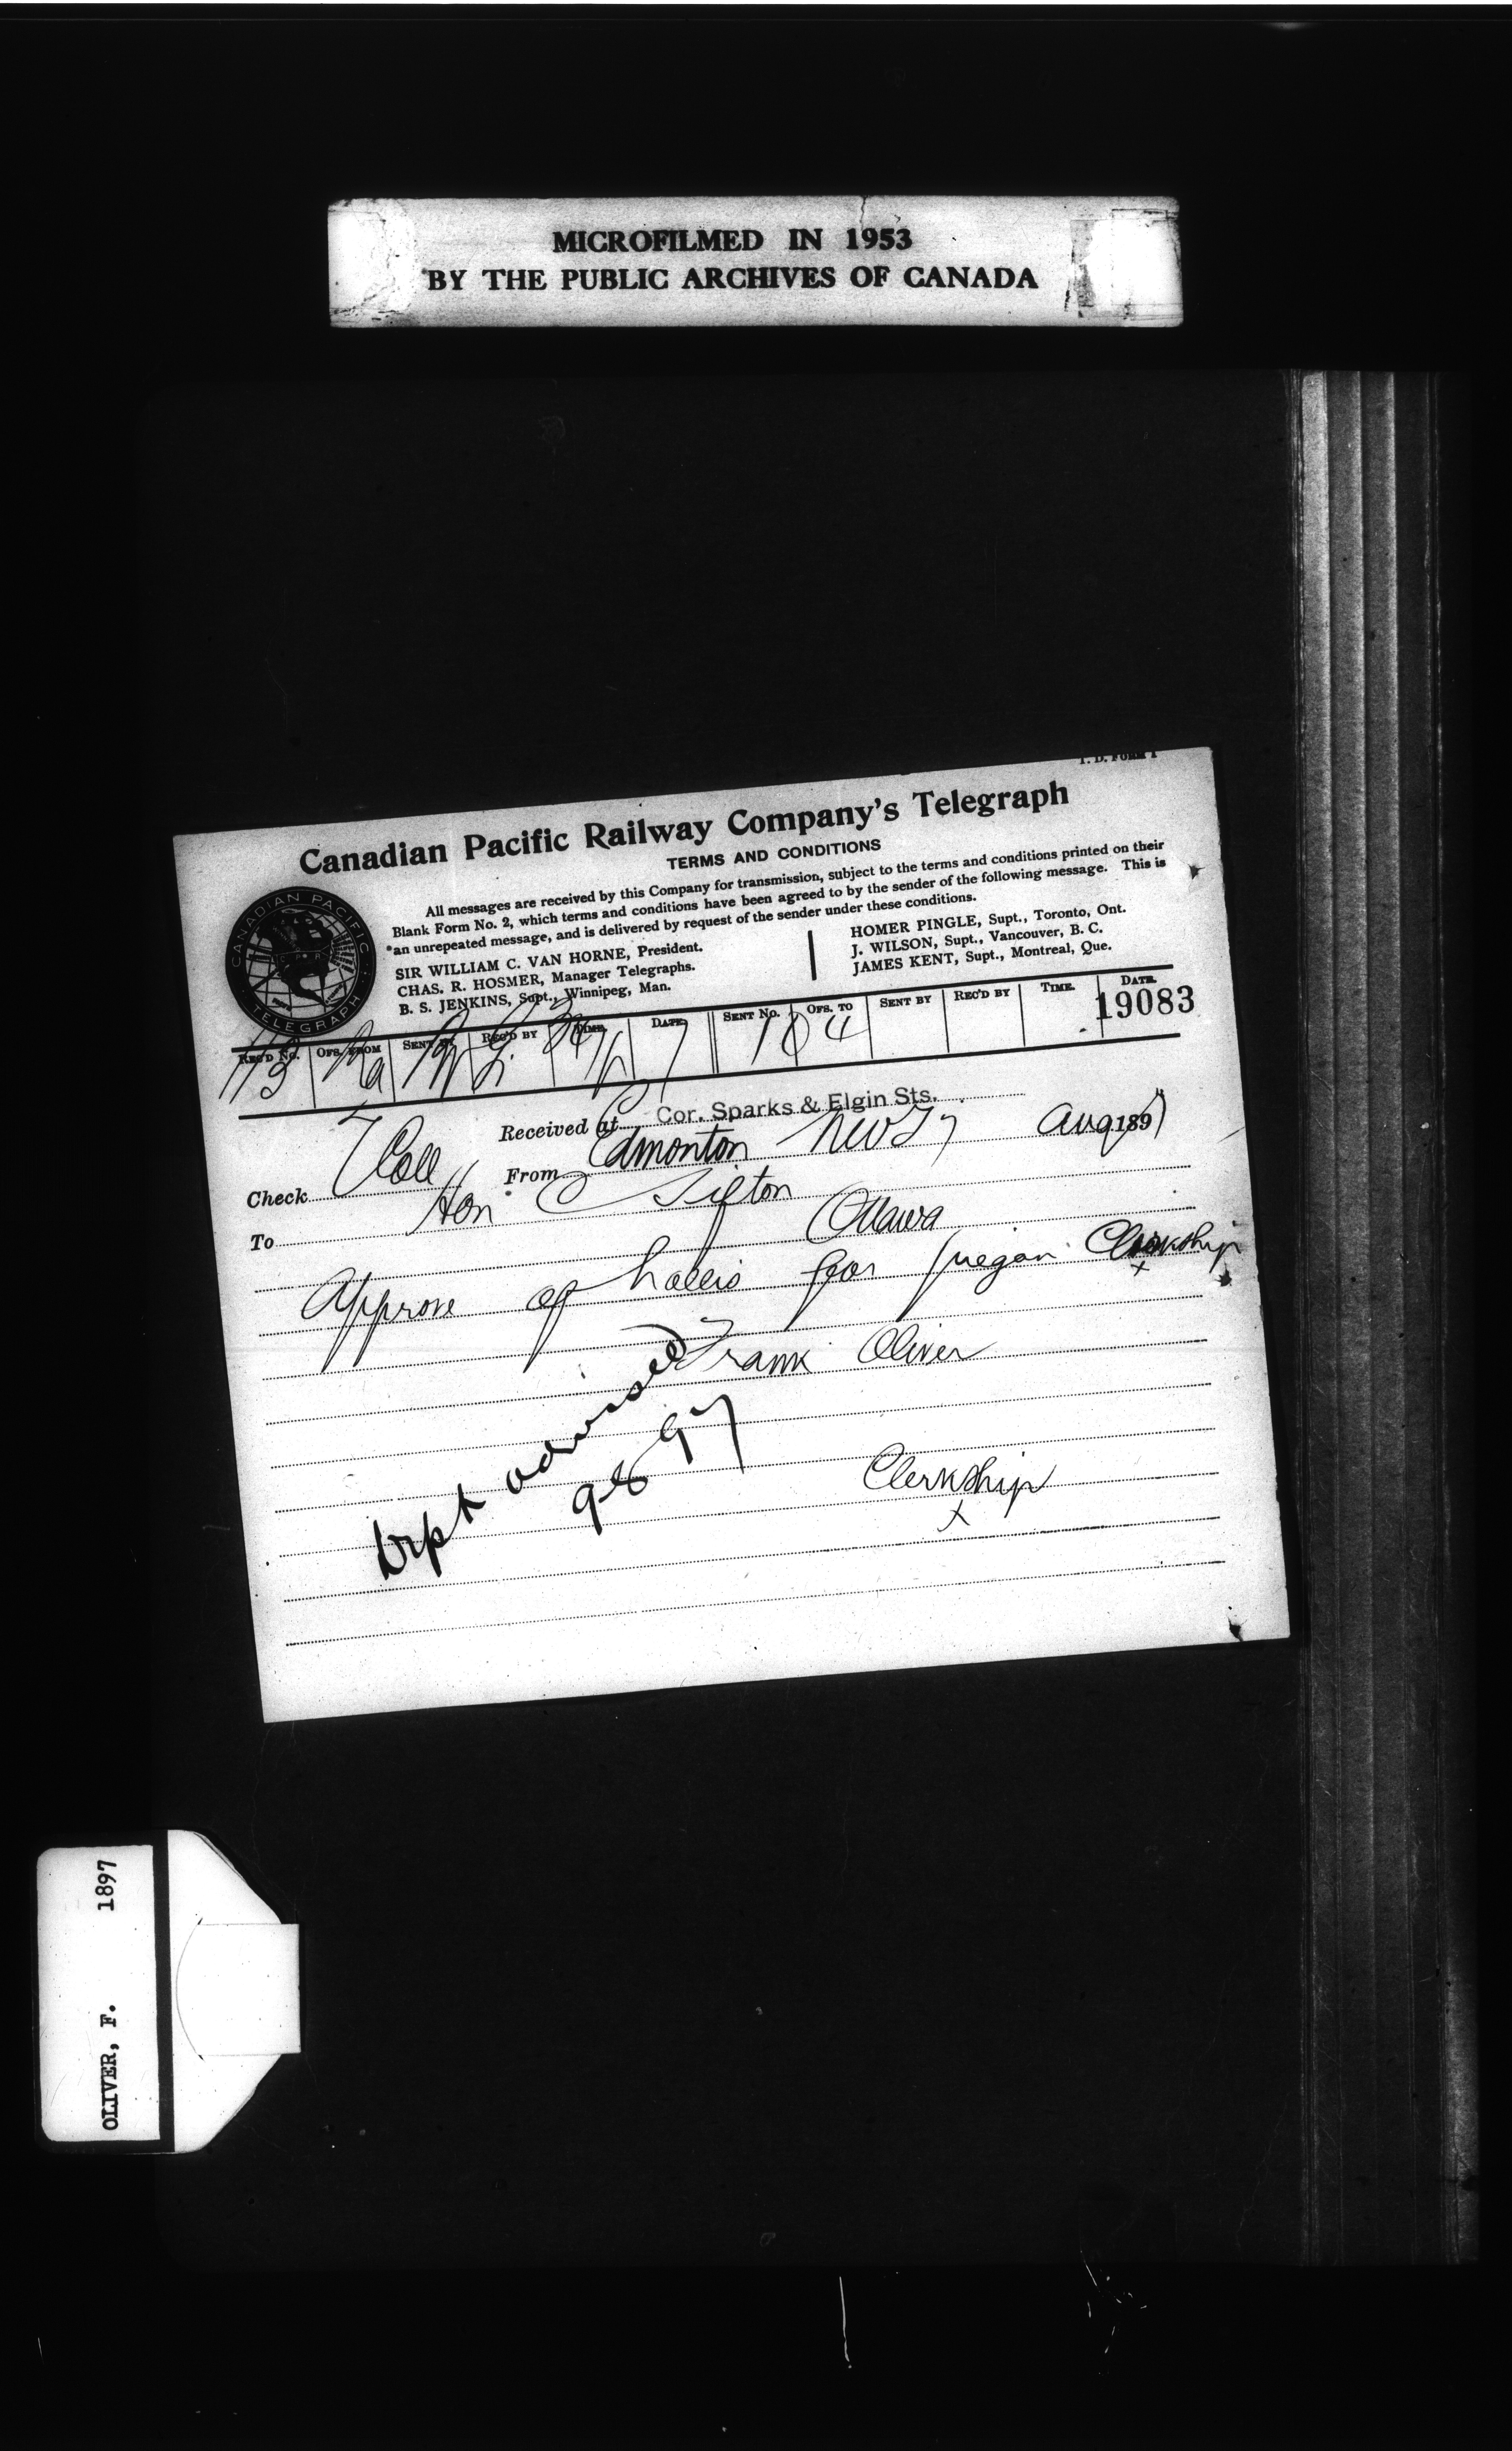 MICROFILMED IN 1953
BY THE PUBLIC ARCHIVES OF CANADA
T. D. FORM 1
Canadian Pacific Railway Company's Telegraph
TERMS AND CONDITIONS
All messages are received by this Company for transmission, subject to the terms and conditions printed on their
Blank Form No. 2, which terms and conditions have been agreed to by the sender of the following message. This is
an unrepeated message, and is delivered by request of the sender under these conditions.
SIR WILLIAM C. VAN HORNE, President.
CHAS. R. HOSMER, Manager Telegraphs.
B. S. JENKINS, Supt., Winnipeg, Man.
HOMER PINGLE, Supt., Toronto, Ont.
J. WILSON, Supt., Vancouver, B. C.
JAMES KENT, Supt., Montreal, Que.
CANADIAN PACIFIC
C P R
TELEGRAPH
REC'D NO. OFS. FROM SENT BY REC'D BY TIME. DATE. SENT NO. OFS. TO SENT BY REC'D BY TIME. DATE.
113 7 104 19083
Received at Cor. Sparks & Elgin Sts.
Check 7 Coll From Edmonton NWT 7 Aug 1897
To Hon C Sifton
Ottawa
Approve of for Clerkship
x
Frank Oliver
Dept advised
9-8-97
Clerkship
x
OLIVER, F. 1897